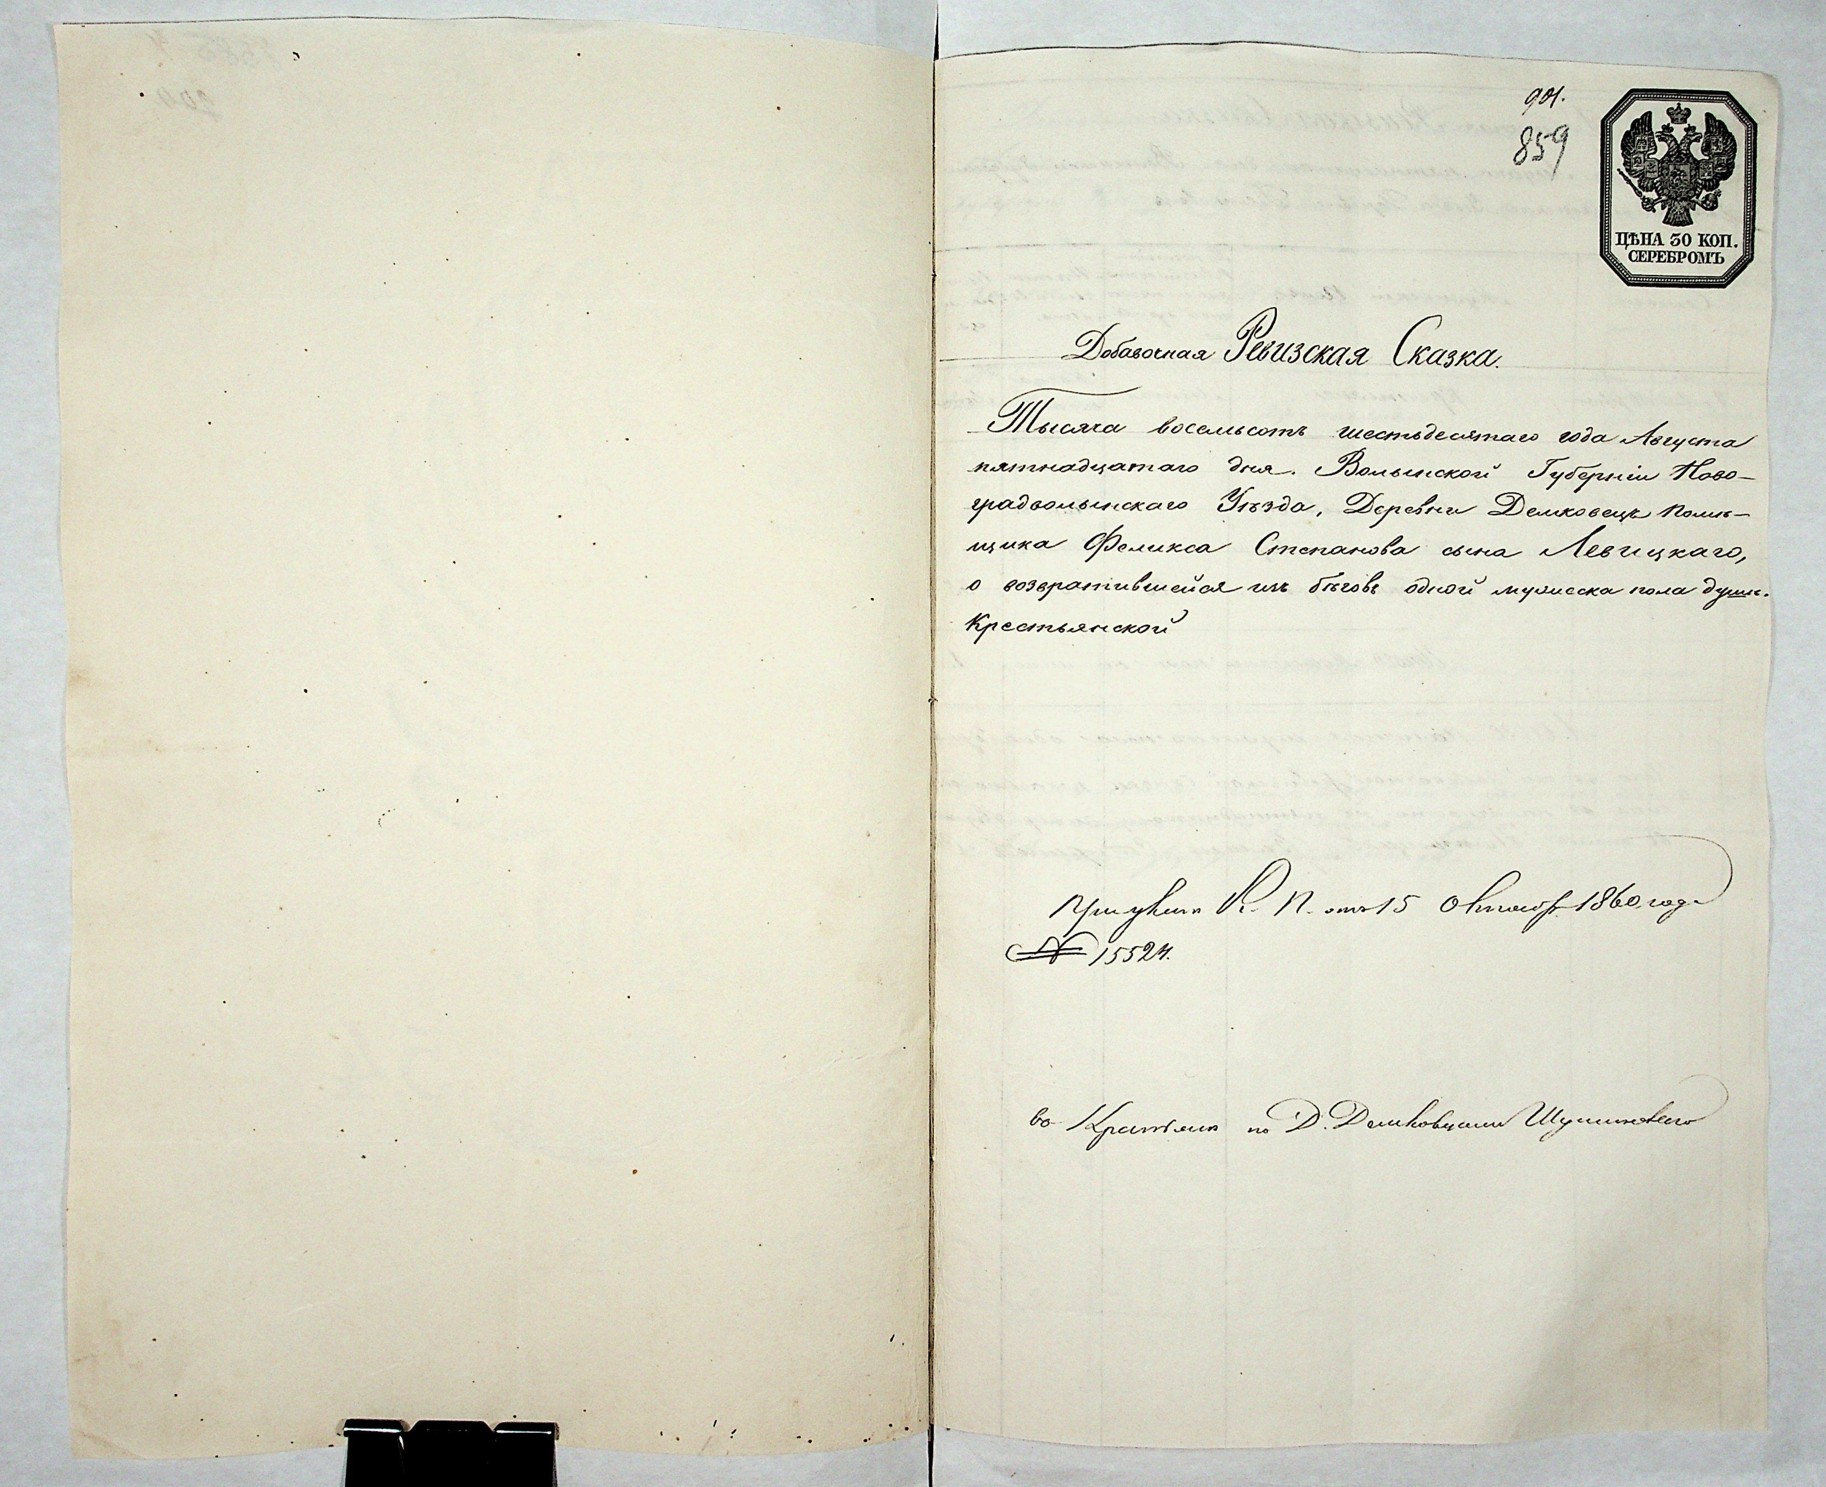 901.
859
ЦѢНА 30 КОП.
СЕРЕБРОМЪ
Добавочная Ревизская Сказка.
Тысяча восемьсотъ шестьдесятаго года Августа
пятнадцатаго дня. Волынской Губерніи Ново-
градволынскаго Уѣзда, Деревни Демковецъ помѣ-
щика Феликса Степанова сына Левицкаго,
о возвратившейся изъ бѣговъ одной мужеска пола душѣ.
Крестьянской
При указѣ К. П. отъ 15 октябр 1860 года
№ 15524.
во Крестьяне по Д. Демковцами